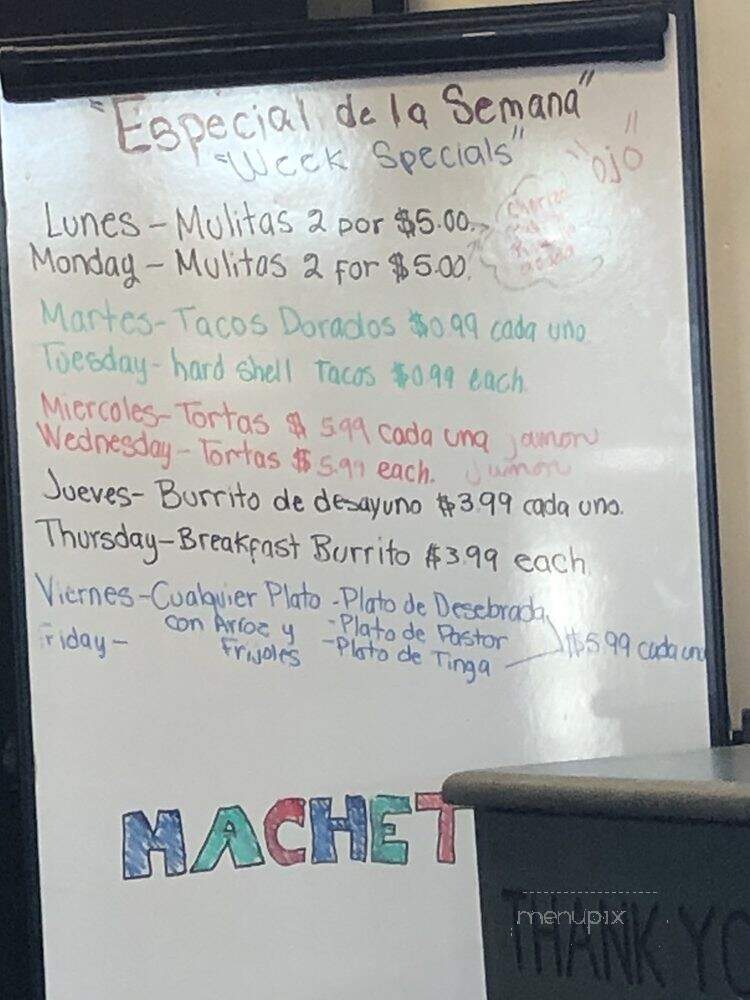 "Especial de la Semana"
"Week Specials"
"ojo"
Lunes - Mulitas 2 por $5.00.
Monday - Mulitas 2 for $5.00.
Martes - Tacos Dorados $0.99 cada uno
Tuesday - hard shell Tacos $0.99 each
Miercoles - Tortas $ 5.99 cada una jamon
Wednesday - Tortas $5.99 each. Jumon
Jueves - Burrito de desayuno $3.99 cada uno.
Thursday - Breakfast Burrito $3.99 each
Viernes - Cualquier Plato - Plato de Desebrada
con Arroz y - Plato de Pastor
Friday - Frijoles - Plato de Tinga $5.99 cada uno
MACHET
menupix
THANK YO